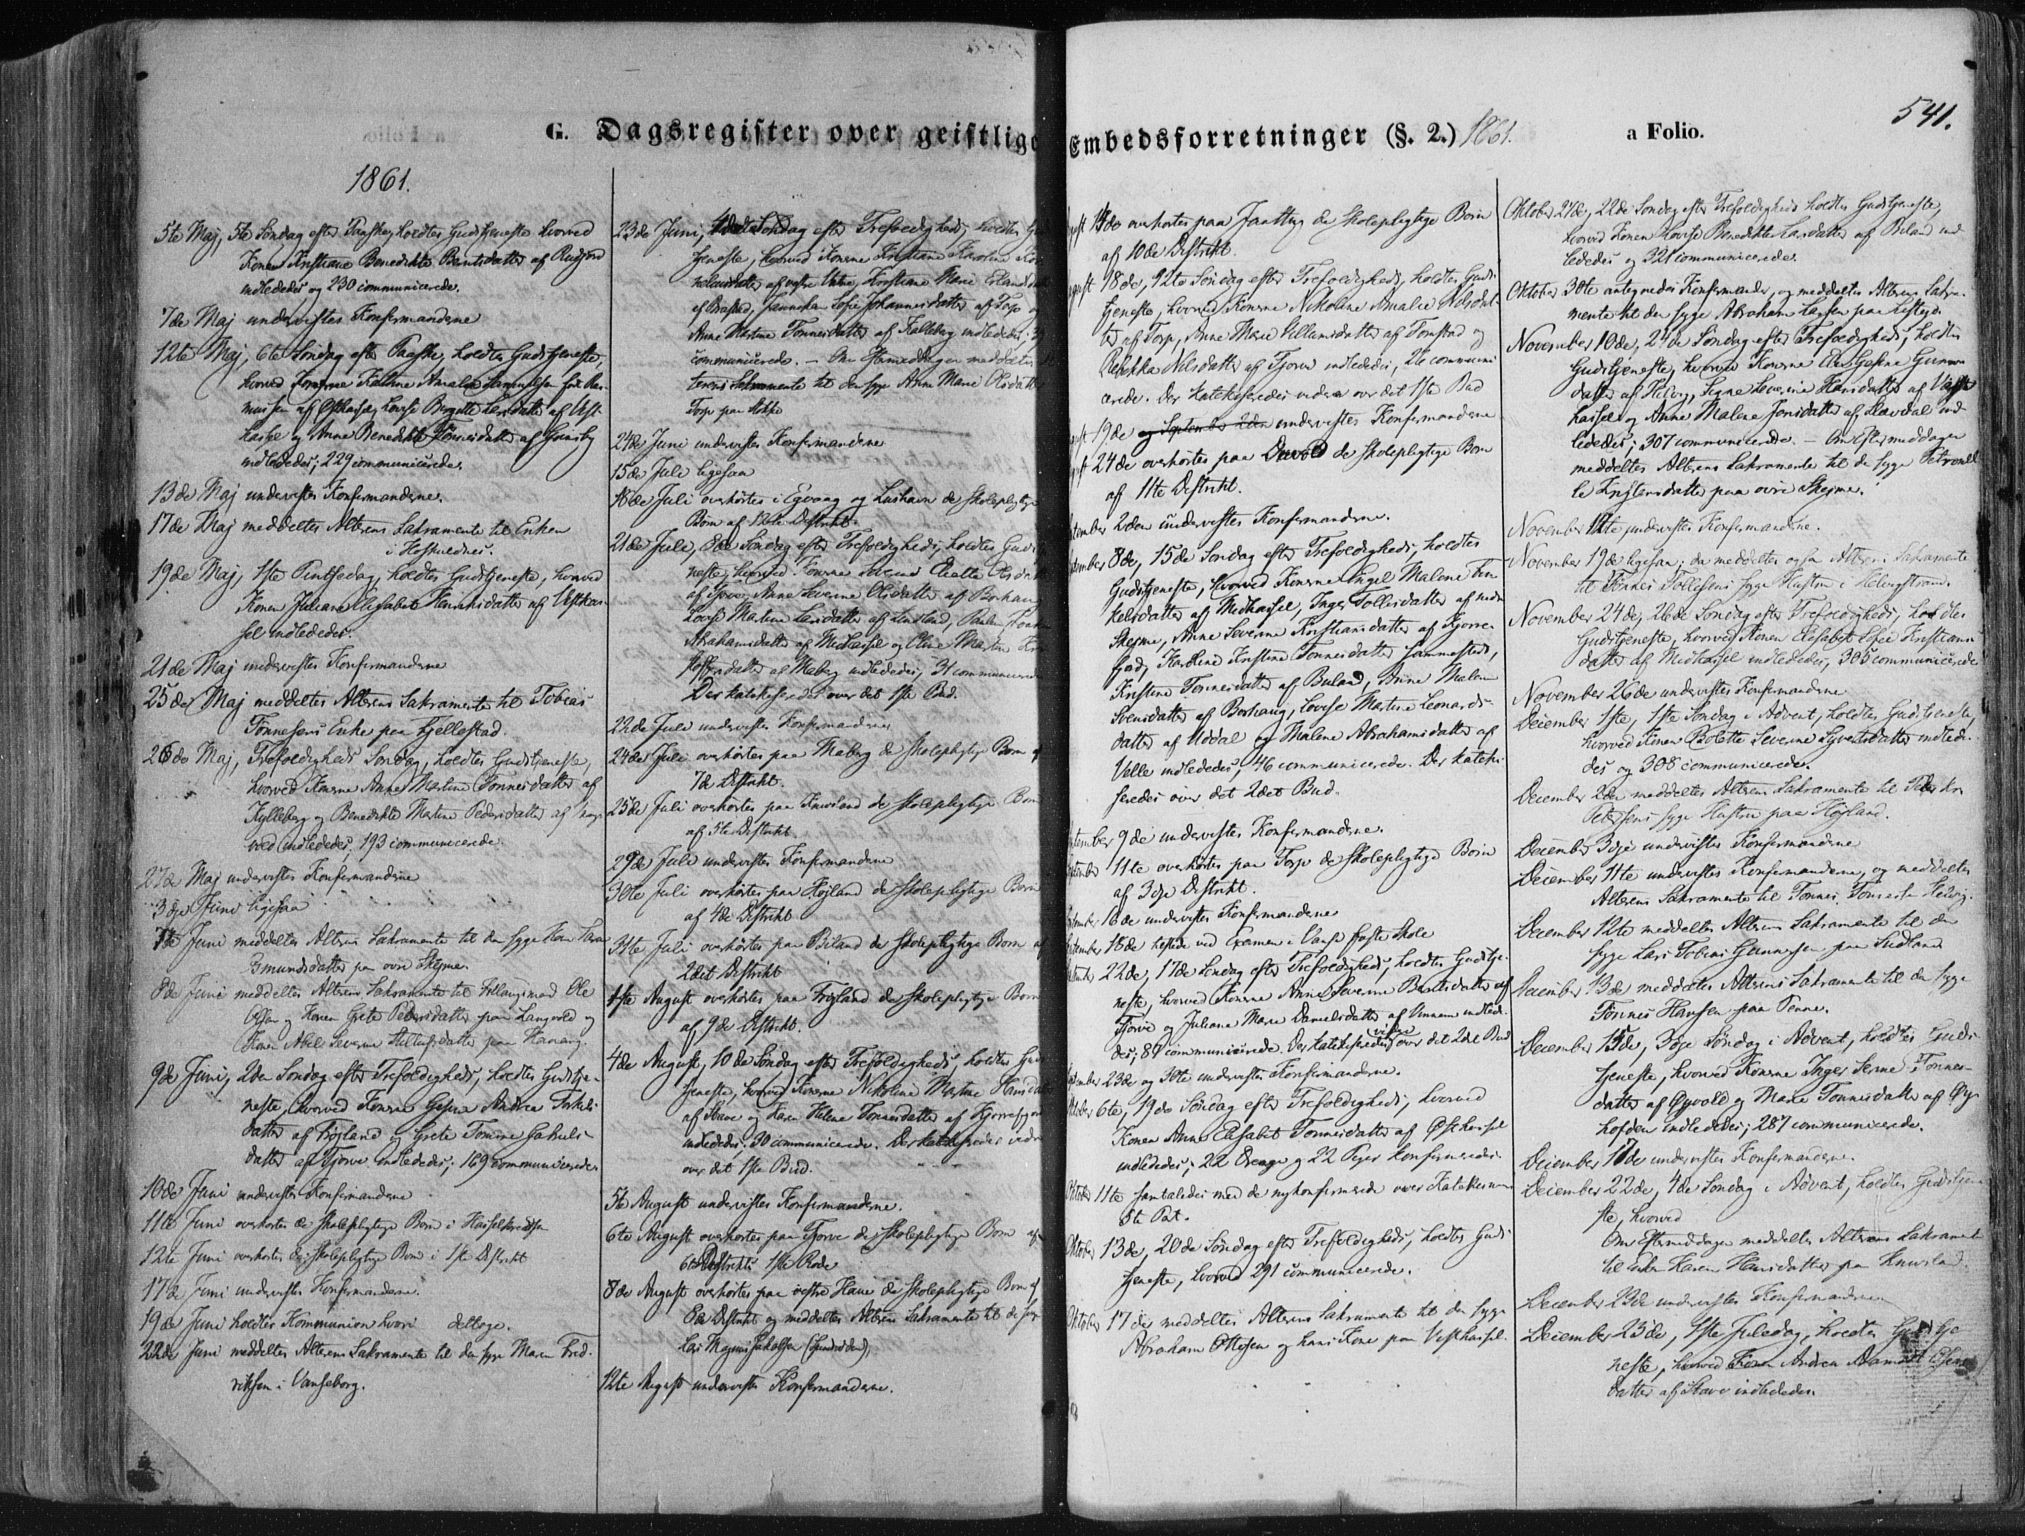 G. Dagsregister over geistlige Embedsforretninger (§. 2.) 1861.
a Folio.
541.
1861.
5te Maj, 5te Søndag efter Paaske, holdtes Gudstjeneste hvorved
Konen Kristiane Benedikte Berntsdatter af Rudjord
indlededes og 230 communicerede.
7de Maj undervistes Konfirmanderne
12te Maj, 6te Søndag efter Paaske, holdtes Gudstjeneste,
hvorved Konerne Kathine Amalia Samuelsen født Ras-
mussen af Østhassel, Lovise Bergitte Larsdatter af Vest-
hassel og Anne Benedikte Tønnesdatter af
indlededes; 229 communicerede.
13de Maj undervistes Konfirmanderne.
17de Maj meddeltes Alterens Sakramente til Enken
i
19de Maj, 1ste Pintsedag, holdtes Gudstjeneste, hvorved
Konen Juliane Elisabet Hansdatter af Vesthas-
sel indlededes.
21de Maj undervistes Konfirmanderne
25de Maj meddeltes Alterens Sakramente til Tobias
Tønnesens Enke paa Fjellestad.
26de Maj, Trefoldigheds Søndag, holdtes Gudstjeneste,
hvorved Konerne Anne Martine Tønnesdatter af
Kylleberg og Benedikte Martine Pedersdatter af
indlededes, 193 communicerede.
27de Maj undervistes Konfirmanderne
3dje Juni ligesaa
7de Juni meddeltes Alterens Sakramente til den syge Kone
Osmundsdatter paa øvre Skeime.
8de Juni meddeltes Alterens Sakramente til Ole
Olsen og Konen Grete Pedersdatter paa Langvold og
Konen Abel Severine paa
9de Juni, 2den Søndag efter Trefoldigheds, holdtes Gudstje-
neste, hvorved Konerne Andrea Terkels-
datter af Højland og Grete Tomine Jakobs-
datter af Tjørve indlededes; 169 communicerede.
10de Juni undervistes Konfirmanderne
11te Juni overhørtes de skolepligtige Børn i
12te Juni overhørtes de skolepligtige Børn i 1ste Distrikt
17de Juni undervistes Konfirmanderne.
19de Juni holdtes Kommunion hvori deltoge.
22de Juni meddeltes Alterens Sakramente til den syge Maren Fred-
riksen i Vanseborg.
23de Juni, 4de Søndag efter Trefoldigheds, holdtes Gud-
tjeneste, hvorved Konerne Kristiane Karoline
af Kristiane Marie
af Sofie Johannesdatter af Torp og
Anne Martine Tønnesdatter af Kalleberg indlededes;
communicerede. — Om Eftermiddagen meddeltes
Sakramente til den syge Anne Marie Olsdatter
Torp paa
24de Juni undervistes Konfirmanderne
15de Juli ligesaa
16de Juli overhørtes i Egvaag og Lushavn de skolepligtige
Børn af 12te Distrikt.
21de Juli, 8de Søndag efter Trefoldigheds, holdtes Gudstje-
neste, hvorved Konerne Olsdatter
af Tjørve, Anne Severine Olsdatter af Borhaug,
Lovise Martine Larsdatter af
Abrahamsdatter af Midhassel og Oline Martine
af Meberg indlededes, 31 communicerede
Der katekiseredes over det 1ste Bud.
22de Juli undervistes Konfirmanderne
24de Juli overhørtes paa Meberg de skolepligtige Børn af
7de Distrikt.
25de Juli overhørtes paa Knivsland de skolepligtige Børn
af 5te Distrikt
29de Juli undervistes Konfirmanderne
30te Juli overhørtes paa Højland de skolepligtige Børn
af 4de Distrikt
31te Juli overhørtes paa Beiland de skolepligtige Børn af
2det Distrikt
1ste August overhørtes paa Frøjland de skolepligtige Børn
af 9de Distrikt.
4de August, 10de Søndag efter Trefoldigheds, holdtes Guds-
tjeneste, hvorved Konerne Nikoline Martine Hansdatter
af Stave og Karen Helene Tønnesdatter af
indlededes; 30 communicerede. Der katekiseredes
over det 1ste Bud.
5te August undervistes Konfirmanderne.
6te August overhørtes paa Tjørve de skolepligtige Børn af
6te Distrikts 1ste Rode
8de August overhørtes paa vestre Haue de skolepligtige Børn af
8de Distrikt og meddeltes Alterens Sakramente til de syge
Lars Jakobsen
12te August undervistes Konfirmanderne.
14de overhørtes paa Jaattog de skolepligtige Børn
af 10de Distrikt.
18de, 12te Søndag efter Trefoldigheds, holdtes Guds-
tjeneste, hvorved Konerne Nikoline Amalie Nilsdat-
ter af Torp, Anne Marie af Tomstad og
Rebekka Nilsdatter af Tjørve indlededes, 26 communi-
cerede. Der katekiseredes over det 1ste Bud
19de og September 2den undervistes Konfirmanderne
24de overhørtes paa de skolepligtige Børn
af 11te Distrikt.
2den undervistes Konfirmanderne.
8de, 15de Søndag efter Trefoldigheds, holdtes
Gudstjeneste, hvorved Konerne Engel Malene Ter-
kelsdatter af Midhassel, Inger Tollisdatter af nedre
Skeime, Anne Severine Kristiansdatter af Kjørre-
fjord, Karoline Kristine Tønnesdatter
Kristine Tønnesdatter af Buland, Anne Malene
Svensdatter af Borhaug, Lovise Martine Leonards-
datter af Uddal og Malene Abrahamsdatter af
Velle indlededes, 46 communicerede. Der kateki-
seredes over det 2det Bud.
September 9de undervistes Konfirmanderne.
September 11te overhørtes paa Torp de skolepligtige Børn
af 3dje Distrikt.
16de undervistes Konfirmanderne
18de Examen i Vanse faste Skole
22de, 17de Søndag efter Trefoldigheds, holdtes Gudstje-
neste, hvorved Konerne Anne Severine Berntsdatter af
Tjørve og Juliane Marie Danielsdatter af Unnem indlede-
des; 87 communicerede. Der katekiseredes over det 2det Bud
23de og 30te undervistes Konfirmanderne.
6te, 19de Søndag efter Trefoldigheds, hvorved
Konen Anne Elisabet Tønnesdatter af Østhassel
indlededes; 22 Drenge og 22 Piger konfirmeredes.
11te samtaledes med de nykonfirmerede over Katekismen
5te Part.
Oktober 13de, 20de Søndag efter Trefoldigheds, holdtes Guds-
tjeneste, hvorved 291 communicerede.
Oktober 17de meddeltes Alterens Sakramente til den syge
Abraham Ottesen og hans Kone paa Vesthassel.
Oktober 27de, 22de Søndag efter Trefoldigheds holdtes Gudstjeneste,
hvorved Konen Lovise Benedikte Larsdatter af Beland ind-
lededes og 321 communicerede.
Oktober 30te antegnedes Konfirmander, og meddeltes Alterens Sakra-
mente til den syge Abraham paa
November 10de, 24de Søndag efter Trefoldigheds, holdtes
Gudstjeneste, hvorved Konerne Gunnars-
datter af Helvig, Signe Severine Hansdatter af Vest-
hassel og Anne Malene Jonsdatter af ind-
lededes; 307 communicerede. — Om Eftermiddagen
meddeltes Alterens Sakramente til de syge Petronel-
le Kristensdatter paa øvre Skeime.
November 12te undervistes Konfirmanderne.
November 19de ligesaa; da meddeltes ogsaa Alterens Sakramente
til Tønnes Tollefsens syge Hustru i Helvigstrand.
November 24de, 26de Søndag efter Trefoldigheds, holdtes
Gudstjeneste, hvorved Konen Elisabet Sofie Kristians-
datter af Midhassel indlededes, 305 communicerede
November 26de undervistes Konfirmanderne
December 1ste, 1ste Søndag i Advent, holdtes Gudstjeneste,
hvorved Konen Severine Syvertsdatter indlede-
des og 308 communicerede.
December 2den meddeltes Alterens Sakramente til Peder
Petersens syge Hustru paa Højland.
December 3dje undervistes Konfirmanderne
December 11te undervistes Konfirmanderne, og meddeltes
Alterens Sakramente til Tønnes Helvig.
December 12te meddeltes Alterens Sakramente til den
syge Lars Tobias Gunnarsen paa Sudland
December 13de meddeltes Alterens Sakramente til den syge
Tønnes Hansen paa Penne.
December 15de, 3dje Søndag i Advent, holdtes Guds-
tjeneste, hvorved Konerne Inger Serine Tønnes-
datter af Øyvold og Marie Tønnesdatter af
indlededes; 287 communicerede.
December 17de undervistes Konfirmanderne.
December 22de, 4de Søndag i Advent, holdtes Gudstjene-
ste, hvorved
Om Eftermiddagen meddeltes Alterens Sakrament
til Karen Hansdatter paa Knivsland.
December 23de undervistes Konfirmanderne
December 25de, 1ste Juledag, holdtes Gudstje-
neste, hvorved Konen Andrea
datter af Stave indlededes.